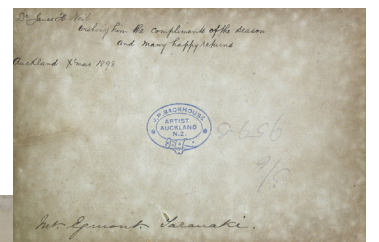 Dr James H Neil
wishing him the compliments of the season
and many happy returns
Auckland Xmas 1898
J.P. BACKHOUSE
ARTIST
AUCKLAND
N.Z.
Mt. Egmont. Taranaki.